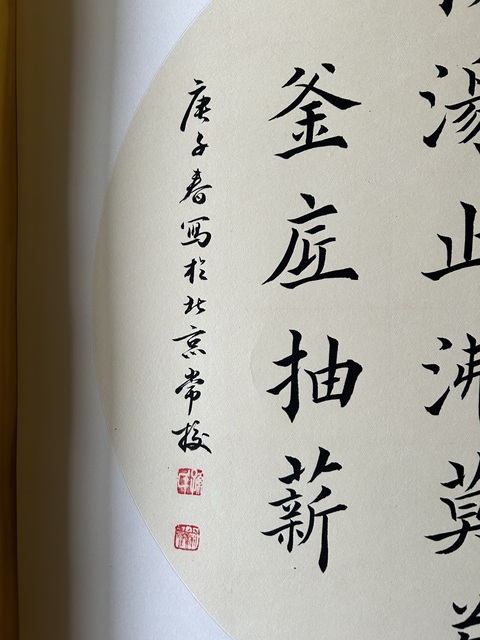 湯止沸莫
釜底抽薪
庚子春寫於北京常